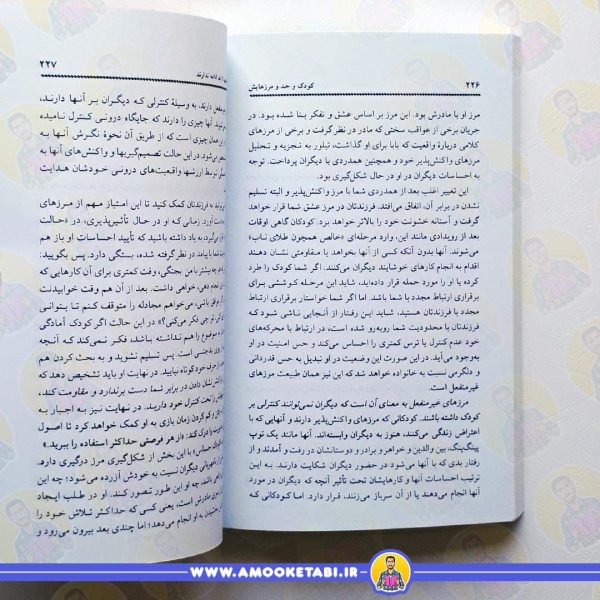 ۲۲۶ کودک و حد و مرزهایش
مرز او با مادرش بود. این مرز بر اساس عشق و تفکر بنا شده بود. در
جریان برخی از عواقب سختی که مادر در نظر گرفت و برخی از مرزهای
کلامی دربارهٔ واقعیت که بابا برای او گذاشت، تبلور به تجزیه و تحلیل
مرزهای واکنش‌پذیر خود و همچنین همدردی با دیگران پرداخت. توجه
به احساسات دیگران در او در حال شکل‌گیری بود.
این تغییر اغلب بعد از همدردی شما با مرز واکنش‌پذیر و البته تسلیم
نشدن در برابر آن، اتفاق می‌افتد. فرزندتان در مرز عشق شما قرار خواهد
گرفت و آستانه خشونت خود را بالاتر خواهد برد. کودکان گاهی اوقات
بعد از رویدادی مانند این، وارد مرحله‌ای «خالص همچون طلای ناب»
می‌شوند. آنها بدون آنکه کسی از آنها بخواهد یا مقاومتی نشان دهند
اقدام به انجام کارهای خوشایند دیگران می‌کنند. اگر شما کودک را طرد
کرده یا او را مورد حمله قرار داده‌اید، شاید این مرحله کوششی برای
برقراری ارتباط مجدد با شما باشد. اما اگر شما خواستار برقراری ارتباط
مجدد با فرزندتان هستید، شاید این رفتار از آنجایی ناشی شود که
فرزندتان با محدودیت شما روبه‌رو شده است، در ارتباط با محرک‌های
خود عدم کنترل یا ترس کمتری را احساس می‌کند و حس امنیت در او
به‌وجود می‌آید. در این صورت این وضعیت در او تبدیل به حس قدردانی
و دلگرمی نسبت به خانواده خواهد شد که این نیز همان طبیعت مرزهای
غیرمنفعل است.
مرزهای غیرمنفعل به معنای آن است که دیگران نمی‌توانند کنترلی بر
کودک داشته باشند. کودکانی که مرزهای واکنش‌پذیر دارند و آنهایی که با
اعتراض زندگی می‌کنند، هنوز به دیگران وابسته‌اند. آنها مانند یک توپ
پینگ‌پنگ، بین والدین و خواهر و برادر و دوستانشان در رفت و آمدند و از
رفتار بدی که با آنها می‌شود در حضور دیگران شکایت دارند. به این
ترتیب احساسات آنها تحت تأثیر آنچه که دیگران در مورد
آنها انجام می‌دهند یا از آن سرباز می‌زنند، قرار دارد. اما کودکانی که
۲۲۷
دارند، به وسیلهٔ کنترلی که دیگران بر آنها دارند،
آنها چیزی را دارند که جایگاه درونی کنترل نامیده
همان چیزی است که از طریق آن نحوهٔ نگرش آنها به
می‌شود. در این حالت تصمیم‌گیریها و واکنش‌های آنها به
توسط ارزشها و واقعیت‌های درونی خودشان هدایت
به فرزندتان کمک کنید تا این امتیاز مهم از مرزهای
آورد. زمانی که او در حال تأثیرپذیری، در «حالت
به یاد داشته باشید که تأیید احساسات او باز هم
شما با پیامد در نظر گرفته شده، بستگی دارد. پس بگویید:
بیشتر با من بجنگی، وقت کمتری برای آن کارهایی که
انجام دهی، خواهی داشت. بعد هم وقت خوابیدنت
باشی، می‌خواهم مجادله را متوقف کنم تا بتوانی
تو چی فکر می‌کنی؟» در این حالت اگر کودک آمادگی
موضوع را هم نداشته باشد، فکر نمی‌کند که آنچه
است. پس تسلیم نشوید و به بحث کردن هم
نهایت او باید تشخیص دهد که
نشان دادن در برابر شما دست بردارد و مقاومت کند،
تحت کنترل خود دارید. در نهایت نیز به اجبار به
و کم کردن زمان بازی به او کمک خواهد کرد تا اصول
درک کند: «از هر فرصتی حداکثر استفاده را ببرید.»
حساس» با این بخش از شکل‌گیری مرز درگیری دارد.
دیگران نسبت به خودش آزرده می‌شود؛ چه این
واقعی باشد، چه او این طور تصور کند. او در طلب ایجاد
مادرش است، یعنی کسی که حداکثر تلاش خود را
به او انجام می‌دهد؛ اما چندی بعد بیرون می‌رود و
WWW.AMOOKETABI.IR